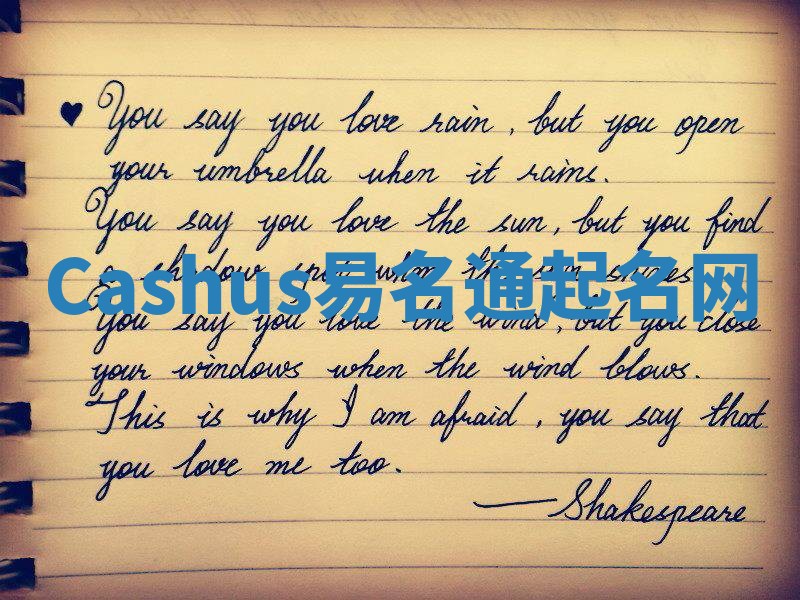 ♥ You say you love rain, but you open
your umbrella when it rains.
You say you love the sun, but you find
a shadow spot when the sun shines
Cashus易名通起名网
You say you love the wind, but you close
your windows when the wind blows.
This is why I am afraid, you say that
you love me too.
— Shakespeare